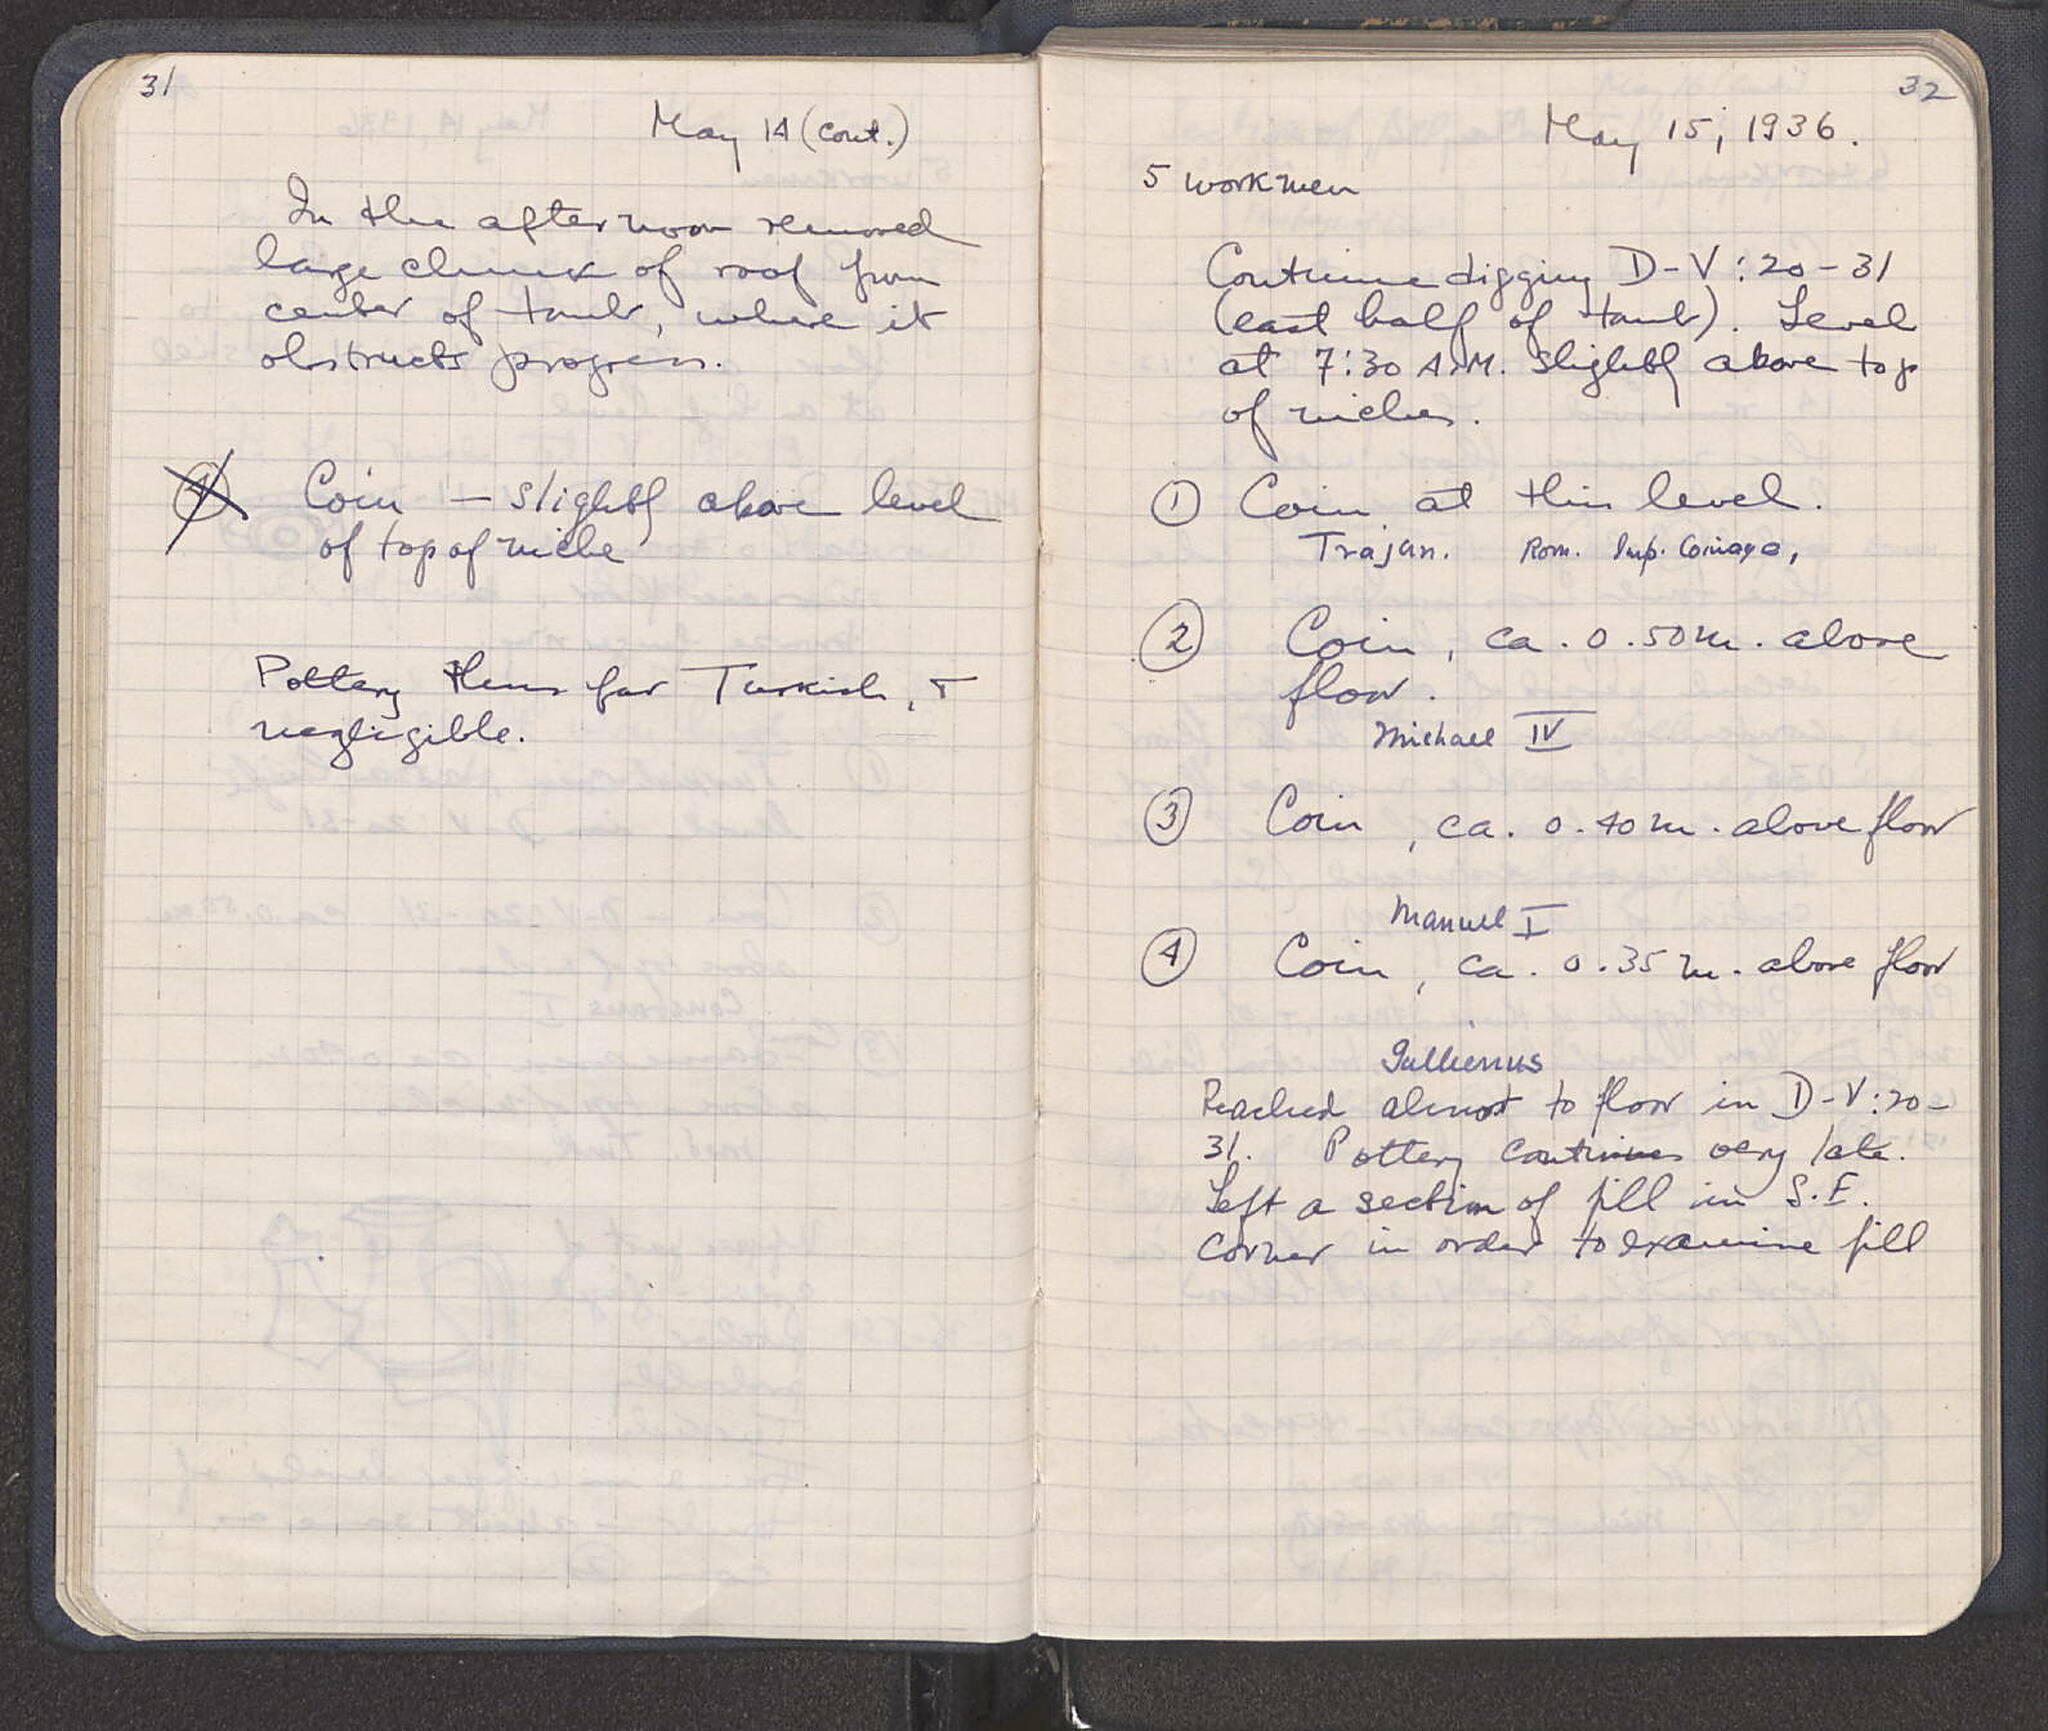 31
May 14 (cont.)
In the afternoon removed
large chunk of roof from
center of tomb, where it
obstructs progress.
④ Coin — slightly above level
of top of niche
Pottery thus far Turkish, +
negligible.
32
May 15, 1936.
5 workmen
Continue digging D-V:20-31
(east half of tomb). Level
at 7:30 A.M. slightly above top
of niches.
① Coin at this level.
Trajan. Rom. Imp. Coinage,
② Coin, ca. 0.50 m. above
floor.
Michael IV
③ Coin, ca. 0.40 m. above floor
Manuel I
④ Coin, ca. 0.35 m. above floor
Gallienus
Reached almost to floor in D-V:20-
31. Pottery continues very late.
Left a section of fill in S.E.
corner in order to examine fill